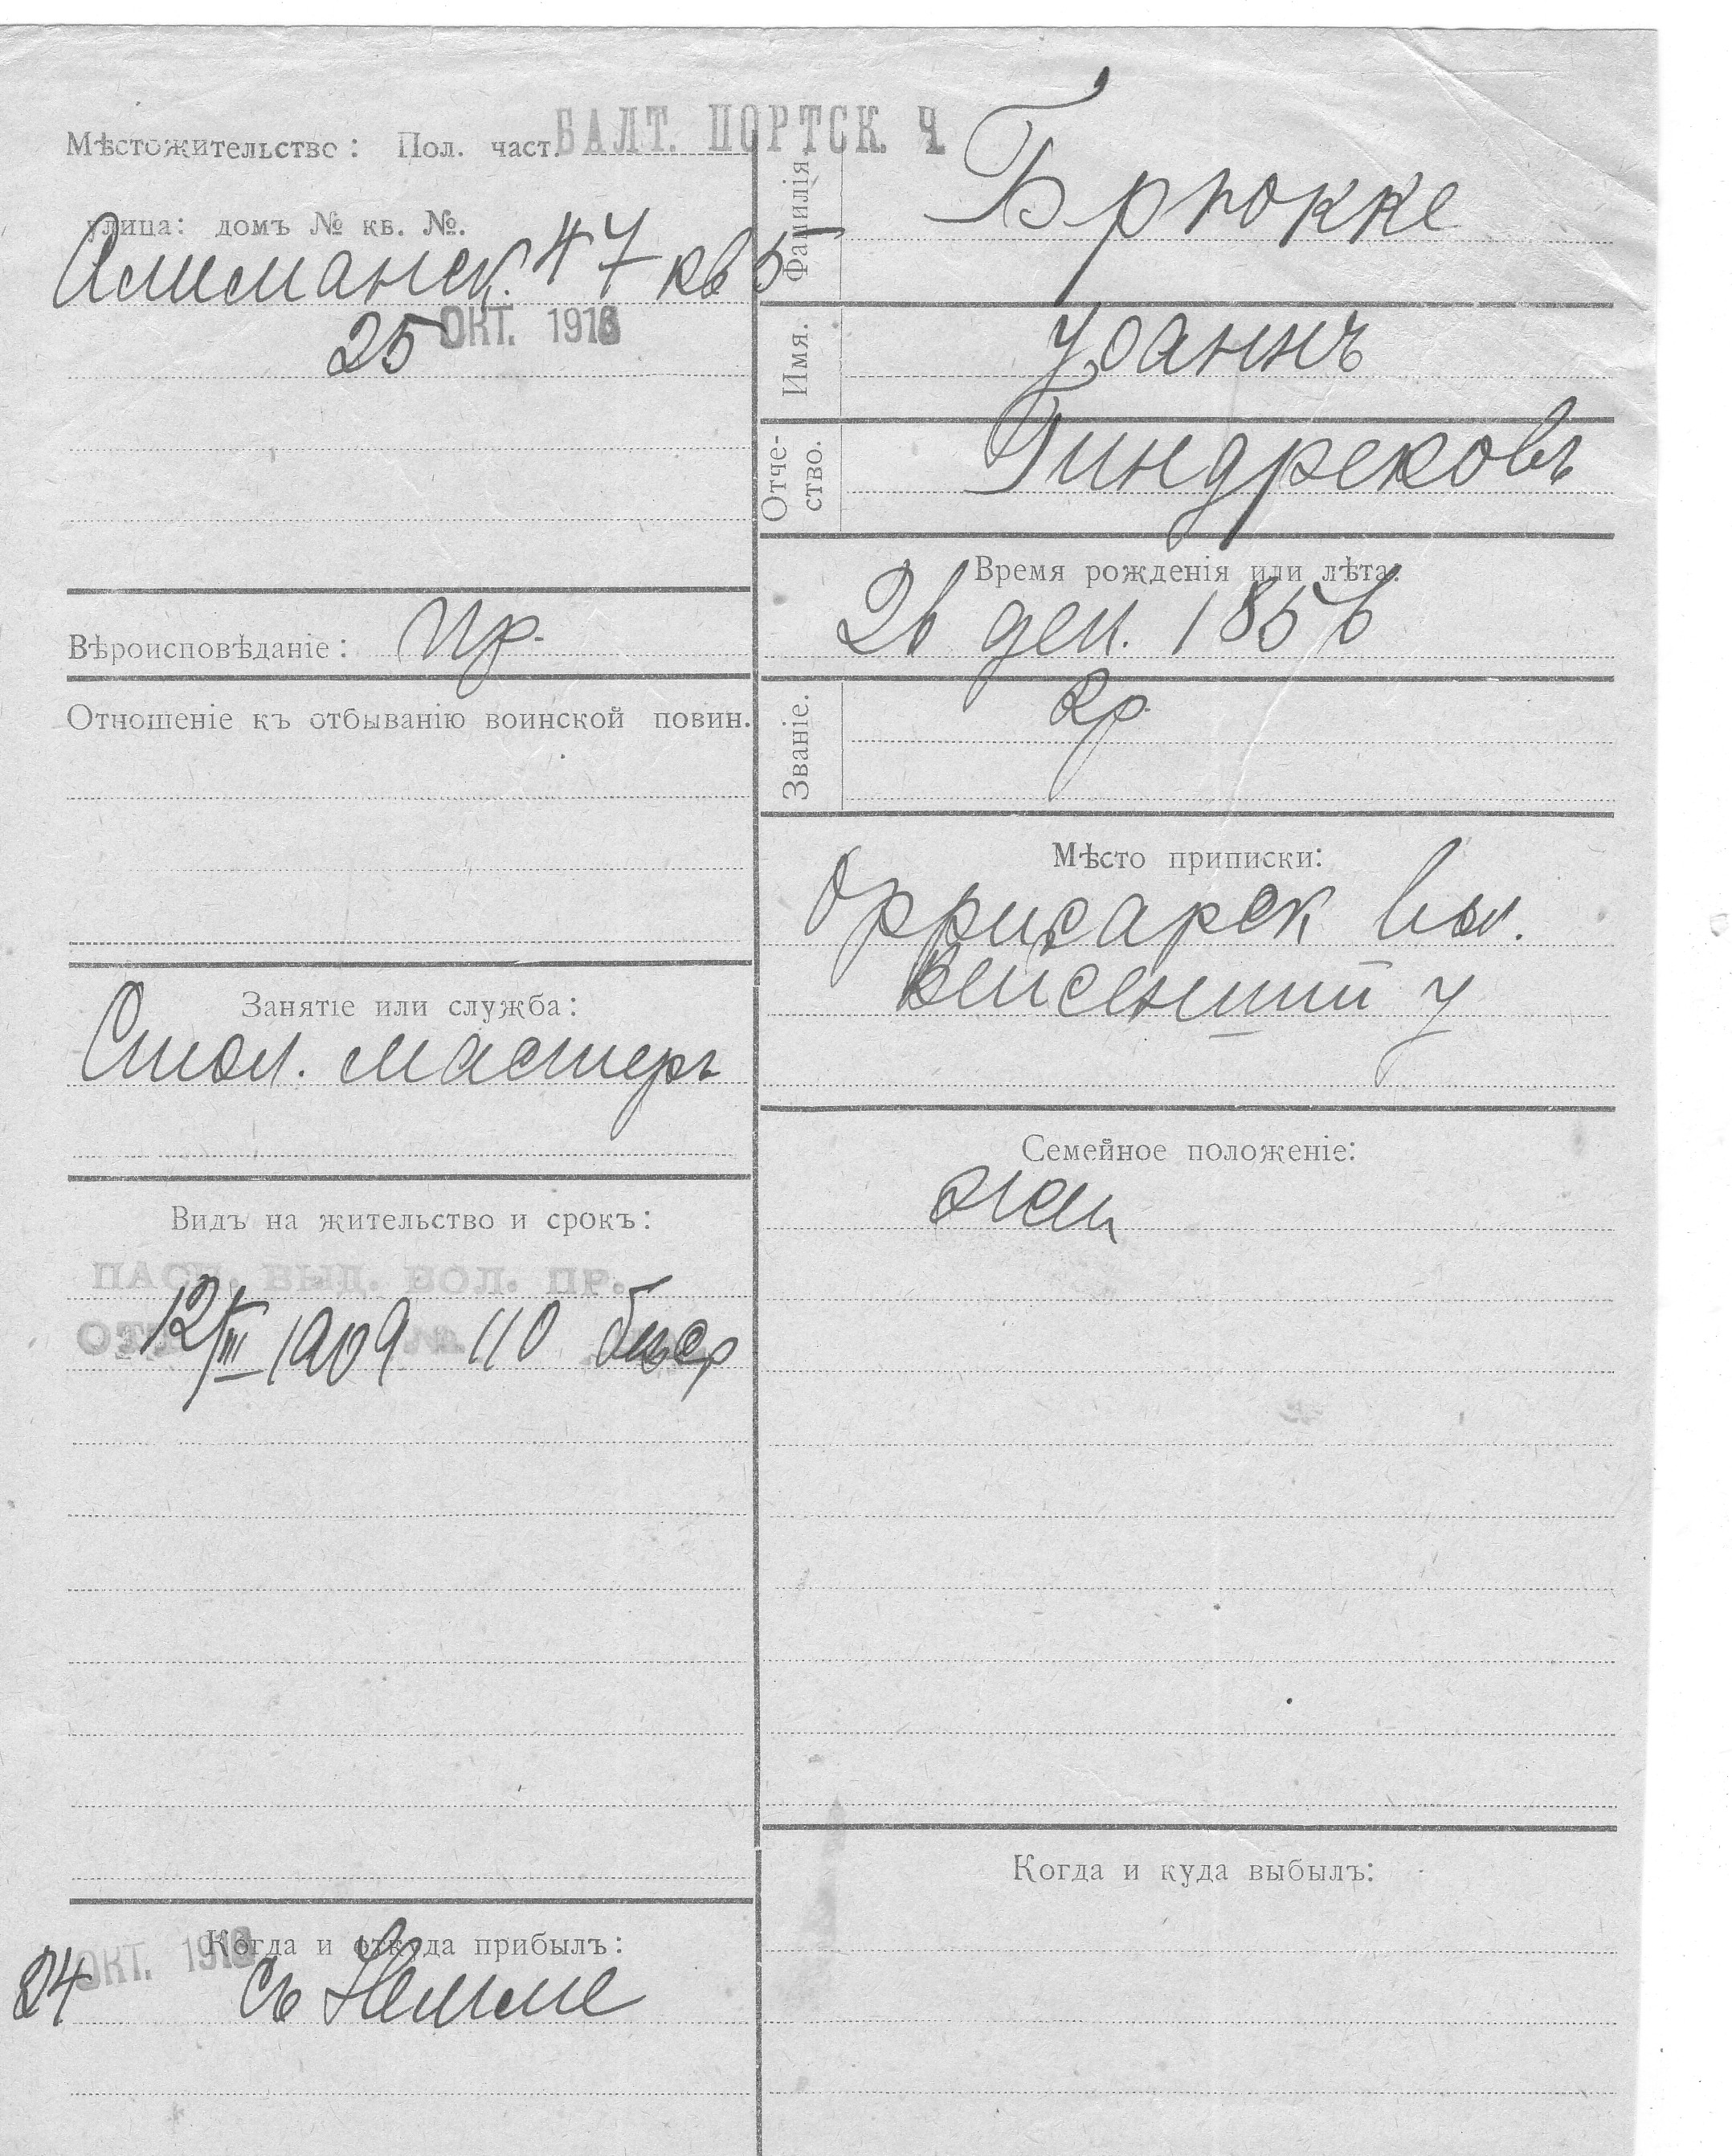 Мѣстожительство: Пол. част. БАЛТ. ПОРТСК. Ч.
улица: домъ № кв. №.
47 кв 5
25 ОКТ. 1916
Вѣроисповѣданіе: пр.
Отношеніе къ отбыванію воинской повин.
Занятіе или служба:
Стол. мастеръ
Видъ на жительство и срокъ:
ПАСП. ВЫД. ВОЛ. ПР.
12/III 1909 110 бизср
Когда и откуда прибылъ:
24 ОКТ. 1916
съ Немме
Фамилія
Брюкке
Имя.
Іоаннъ
Отче-
ство.
Гиндрековъ
Время рожденія или лѣта:
26 дек. 1856
Званіе.
кр
Мѣсто приписки:
Оррисарск вол.
у
Семейное положеніе:
жен
Когда и куда выбылъ: